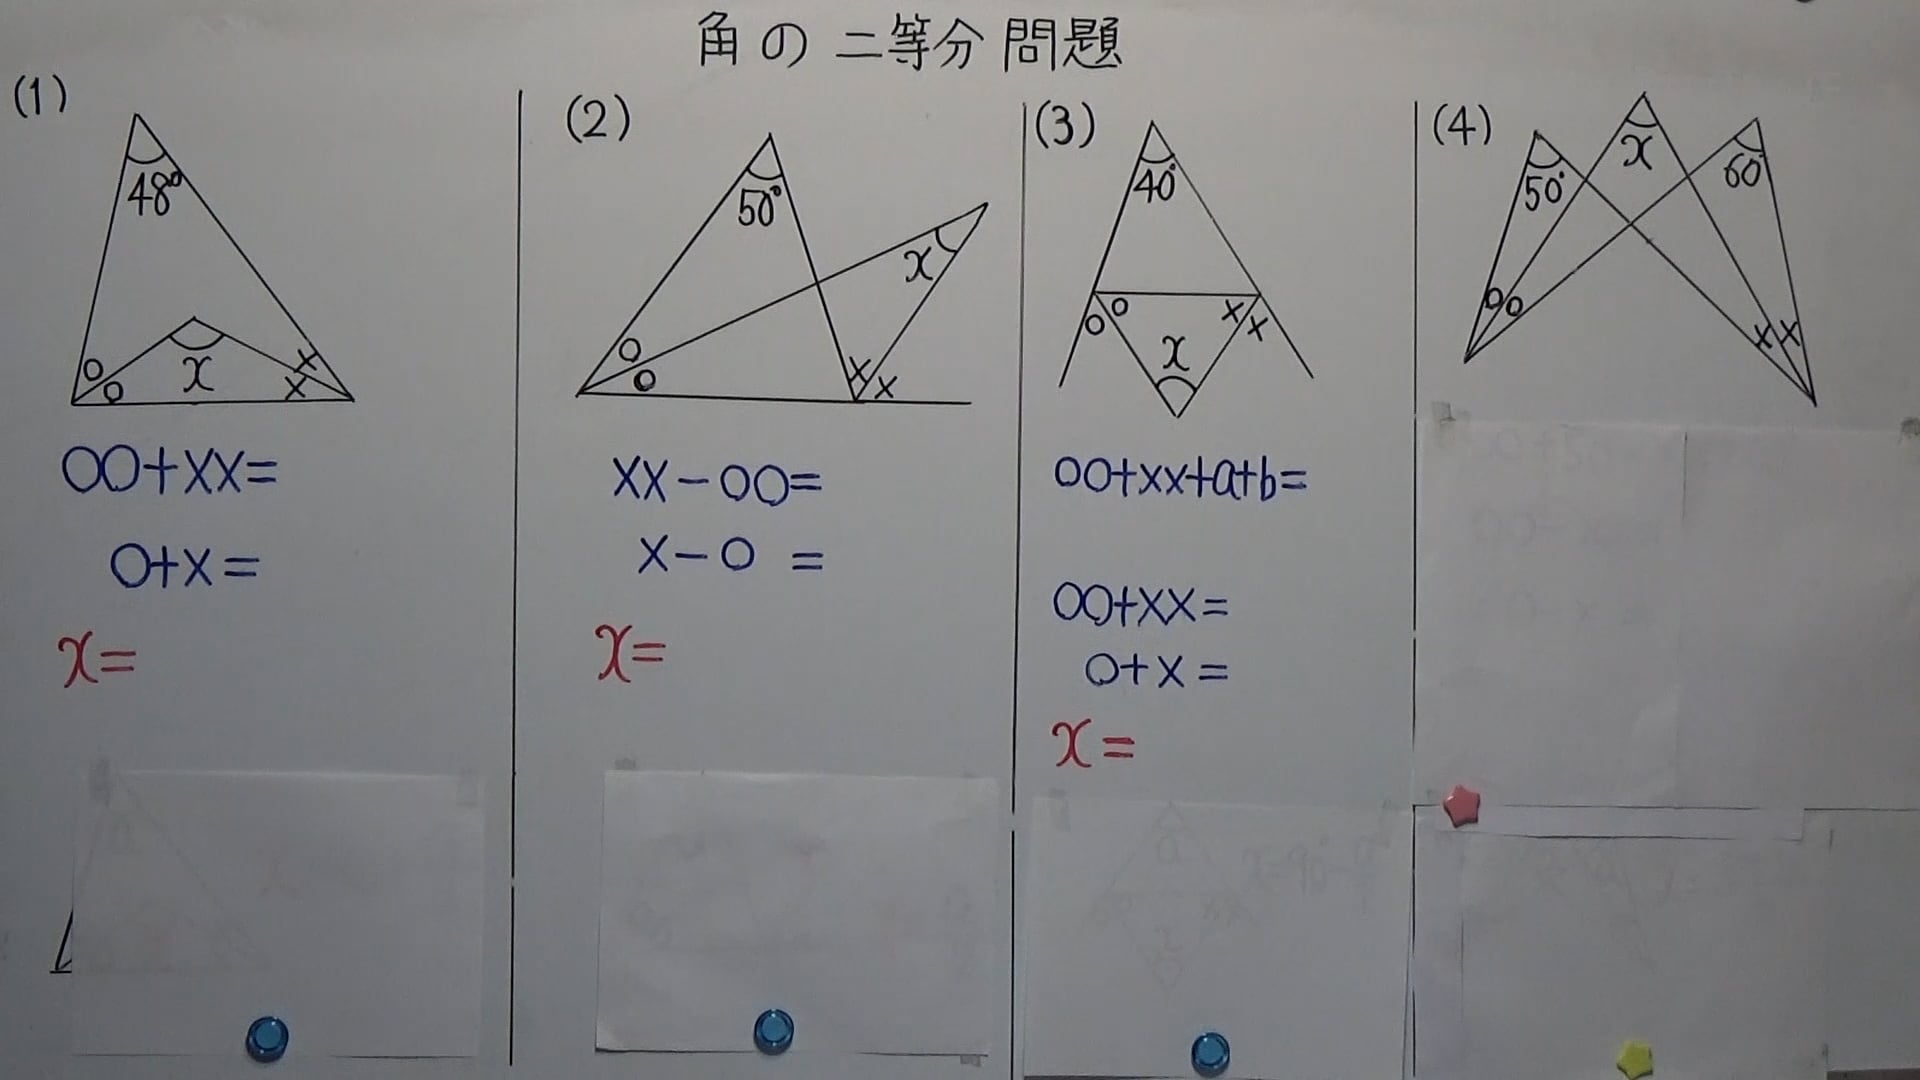 角の二等分問題
(1)
48°
x
○
○
×
×
○○+××=
○+×=
x=
(2)
50°
x
○
○
×
×
××-○○=
×-○ =
x=
(3)
40°
○
○
×
×
x
○○+××+a+b=
○○+××=
○+×=
x=
(4)
50°
x
60°
○
○
×
×